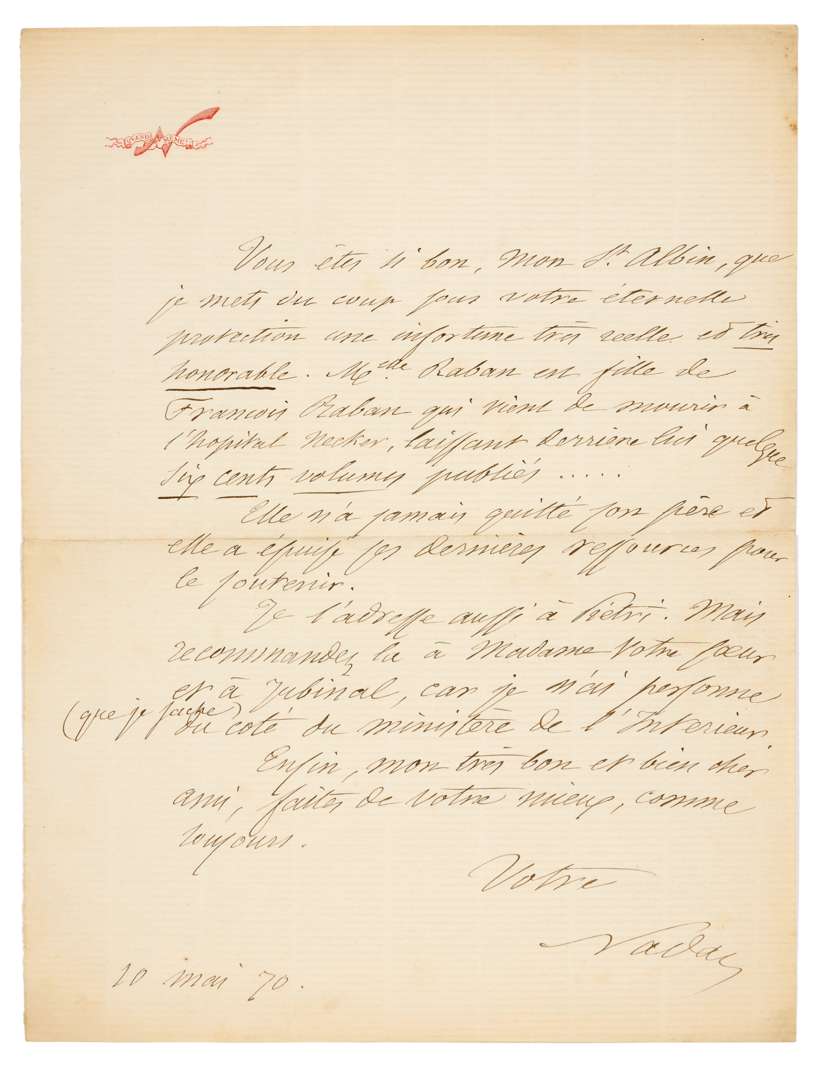 Vous êtes si bon, mon St Albin, que
je mets du coup sous votre éternelle
protection une infortune très réelle et très
honorable. Melle Raban est fille de
François Raban qui vient de mourir à
l'hopital Necker, laissant derrière lui quelque
six cents volumes publiés .....
Elle n'a jamais quitté son père et
elle a épuisé ses dernières ressources pour
le soutenir.
Je l'adresse aussi à Piétri. Mais
recommandez la à Madame Votre soeur
et à Jubinal, car je n'ai personne
(que je sache)
du coté du ministère de l'Interieur
Enfin, mon très bon et bien cher
ami, faites de votre mieux, comme
toujours.
Votre
Nadar
10 mai 70.